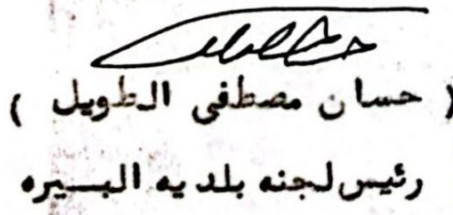 ( حسان مصطفى الطويل )
رئيس لجنه بلديه البسيره